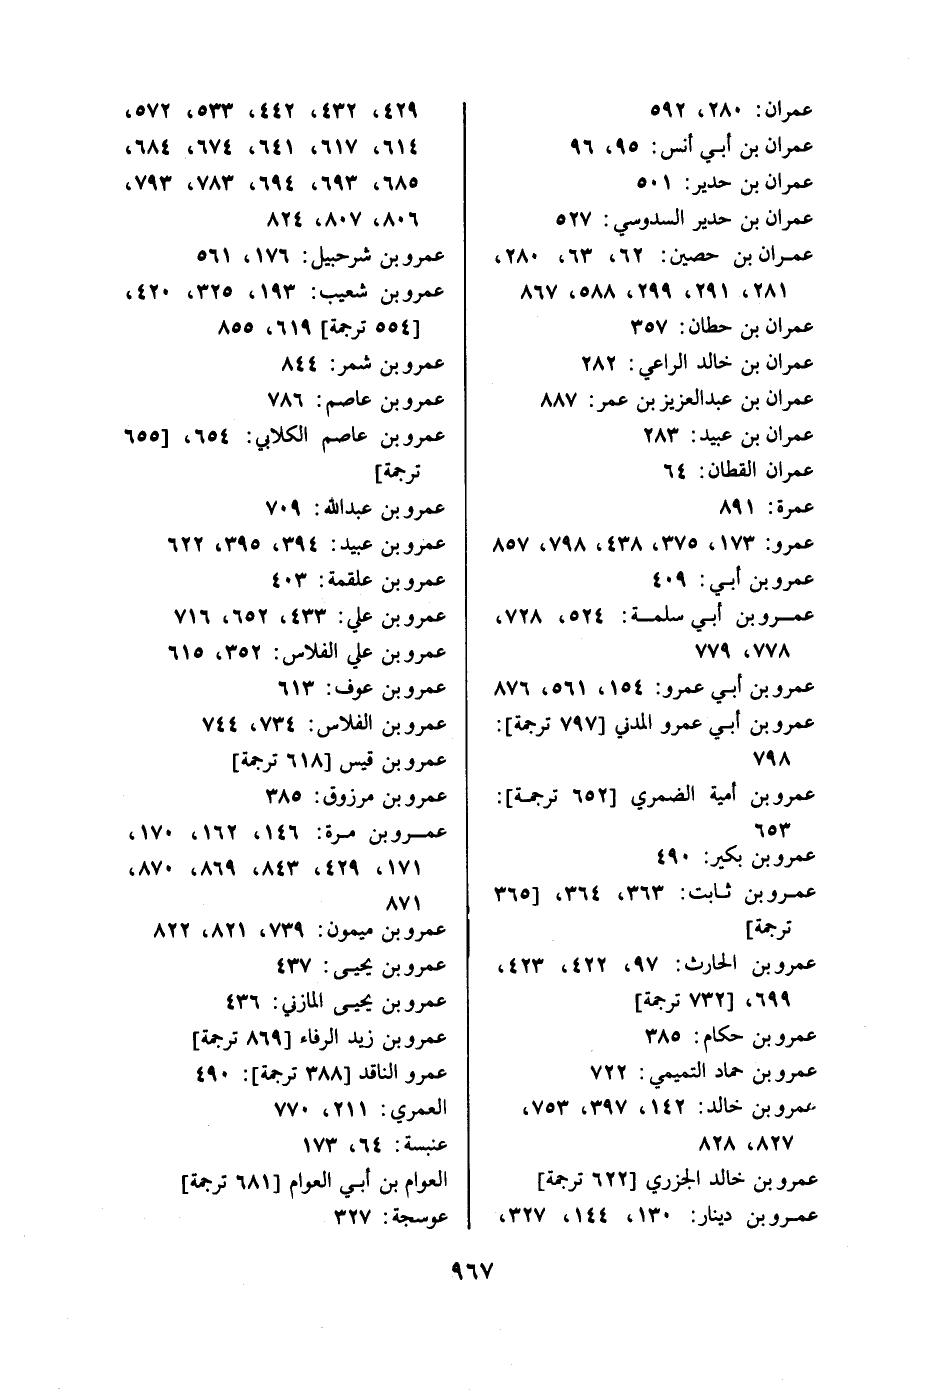 عمران: ٢٨٠، ٥٩٢
عمران بن أبي أنس: ٩٥، ٩٦
عمران بن حدير: ٥٠١
عمران بن حدير السدوسي: ٥٢٧
عمران بن حصين: ٦٢، ٦٣، ٢٨٠،
٢٨١، ٢٩١، ٢٩٩، ٥٨٨، ٨٦٧
عمران بن حطان: ٣٥٧
عمران بن خالد الراعي: ٢٨٢
عمران بن عبدالعزيز بن عمر: ٨٨٧
عمران بن عبيد: ٢٨٣
عمران القطان: ٦٤
عمرة: ٨٩١
عمرو: ١٧٣، ٣٧٥، ٤٣٨، ٧٩٨، ٨٥٧
عمرو بن أبي: ٤٠٩
عمرو بن أبي سلمة: ٥٢٤، ٧٢٨،
٧٧٨، ٧٧٩
عمرو بن أبي عمرو: ١٥٤، ٥٦١، ٨٧٦
عمرو بن أبي عمرو المدني [٧٩٧ ترجمة]:
٧٩٨
عمرو بن أمية الضمري [٦٥٢ ترجمة]:
٦٥٣
عمرو بن بكير: ٤٩٠
عمرو بن ثابت: ٣٦٣، ٣٦٤، [٣٦٥
ترجمة]
عمرو بن الحارث: ٩٧، ٤٢٢، ٤٢٣،
٦٩٩، [٧٣٢ ترجمة]
عمرو بن حكام: ٣٨٥
عمرو بن حماد التميمي: ٧٢٢
عمرو بن خالد: ١٤٢، ٣٩٧، ٧٥٣،
٨٢٧، ٨٢٨
عمرو بن خالد الجزري [٦٢٢ ترجمة]
عمرو بن دينار: ١٣٠، ١٤٤، ٣٢٧،
٤٢٩، ٤٣٢، ٤٤٢، ٥٣٣، ٥٧٢،
٦١٤، ٦١٧، ٦٤١، ٦٧٤، ٦٨٤،
٦٨٥، ٦٩٣، ٦٩٤، ٧٨٣، ٧٩٣،
٨٠٦، ٨٠٧، ٨٢٤
عمرو بن شرحبيل: ١٧٦، ٥٦١
عمرو بن شعيب: ١٩٣، ٣٢٥، ٤٢٠،
[٥٥٤ ترجمة] ٦١٩، ٨٥٥
عمرو بن شمر: ٨٤٤
عمرو بن عاصم: ٧٨٦
عمرو بن عاصم الكلابي: ٦٥٤، [٦٥٥
ترجمة]
عمرو بن عبدالله: ٧٠٩
عمرو بن عبيد: ٣٩٤، ٣٩٥، ٦٢٢
عمرو بن علقمة: ٤٠٣
عمرو بن علي: ٤٣٣، ٦٥٢، ٧١٦
عمرو بن علي الفلاس: ٣٥٢، ٦١٥
عمرو بن عوف: ٦١٣
عمرو بن الفلاس: ٧٣٤، ٧٤٤
عمرو بن قيس [٦١٨ ترجمة]
عمرو بن مرزوق: ٣٨٥
عمرو بن مرة: ١٤٦، ١٦٢، ١٧٠،
١٧١، ٤٢٩، ٨٤٣، ٨٦٩، ٨٧٠،
٨٧١
عمرو بن ميمون: ٧٣٩، ٨٢١، ٨٢٢
عمرو بن يحيى: ٤٣٧
عمرو بن يحيى المازني: ٤٣٦
عمرو بن زيد الرفاء [٨٦٩ ترجمة]
عمرو الناقد [٣٨٨ ترجمة]: ٤٩٠
العمري: ٢١١، ٧٧٠
عنبسة: ٦٤، ١٧٣
العوام بن أبي العوام [٦٨١ ترجمة]
عوسجة: ٣٢٧
٩٦٧